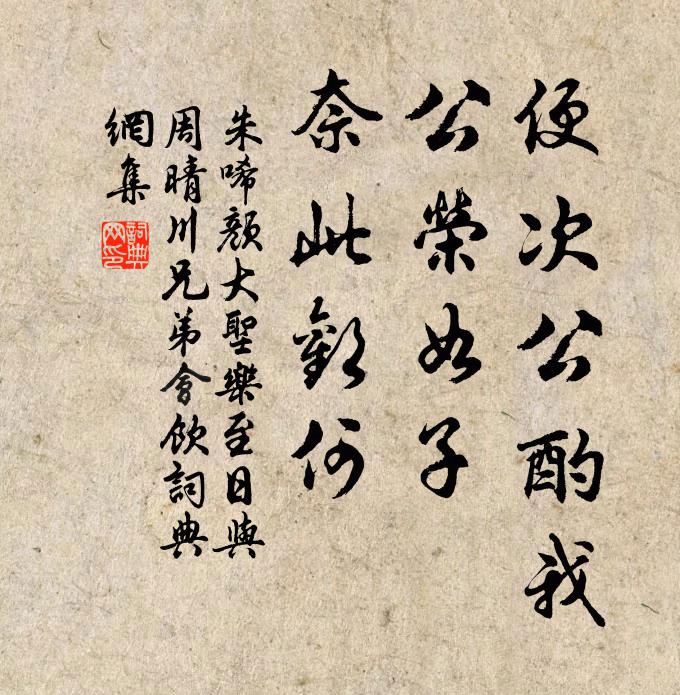 便次公酌我
公榮如子
奈此歡何
朱晞顏大聖樂至日與
周晴川兄弟會飲詞典
網集
詞典
网印